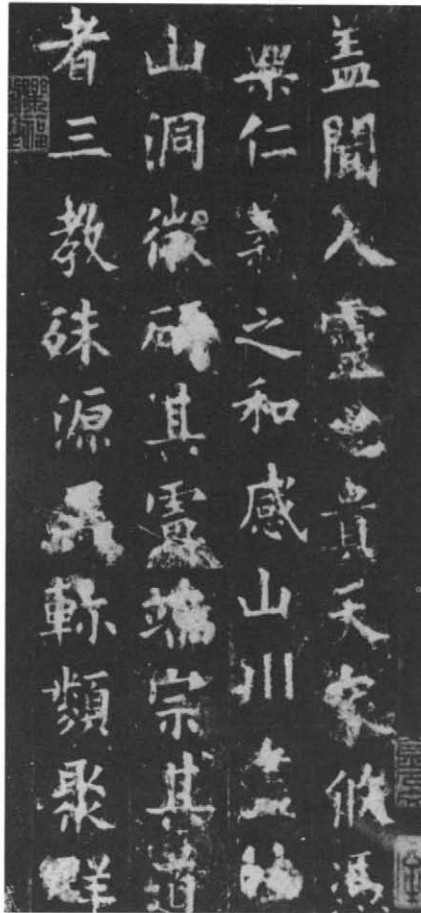 盖聞人靈貴天象攸馮
稟仁義之和感山川
洞微研其慮端宗其道
者三教殊源異軫類聚群